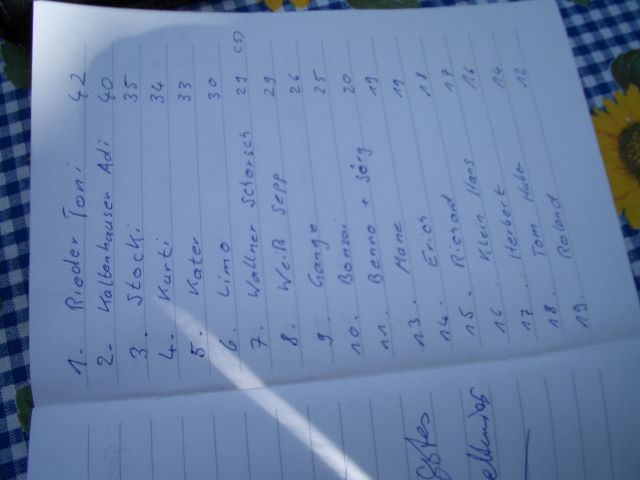 1. Rieder Toni 42
2. Kaltenhauser Adi 40
3. Stocki 35
4. Kurti 34
5. Kater 33
6. Limo 30
7. Wallner Schorsch 29 (5)
8. Weiß Sepp 29
9. Gango 26
10. Bonsai 25
11. Benno + Jörg 20
13. Mane 19
14. Erich 19
15. Richard 18
16. Klein Hans 17
17. Herbert 16
18. Tom Huber 14
19. Roland 12